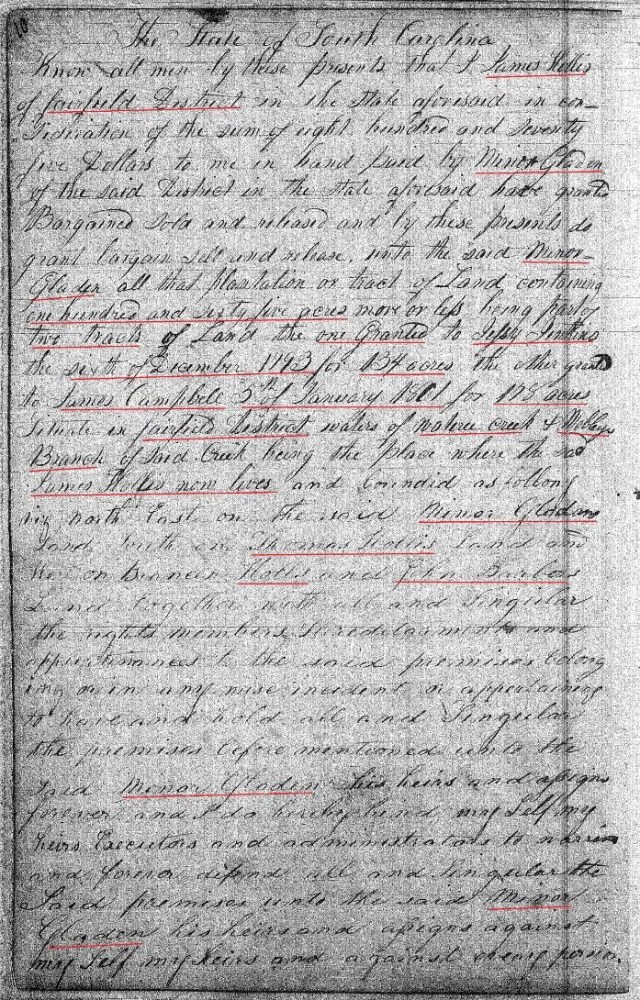 10
The State of South Carolina
Know all men by these presents that I James Hollis
of fairfield District in the State aforesaid in con-
sideration of the sum of eight hundred and seventy
five Dollars to me in hand paid by Minor Gladen
of the said District in the State aforesaid have granted
Bargained Sold and released and by these presents do
grant bargain sell and release unto the said Minor
Gladen all that plantation or tract of Land containing
one hundred and sixty five acres more or less being part of
two tracts of Land the one Granted to
the sixth of December 1793 for 134 acres the other granted
to James Campbell 5th of January 1801 for acres
Situate in fairfield District waters of wateree creek &
Branch of said Creek being the place where the said
James Hollis now lives and boundid as follow
ing north East on the said Minor Gladens
Land South on Thomas Hollis Land and
on Hollis and
Land together with all and Singular
the rights members and
appurtenances to the said premises belong
ing or in any wise incident or appertaining
to have and hold all and Singular
the premises before mentioned unto the
said Minor Gladen his heirs and assigns
forever and I do hereby bind my Self my
heirs Executors and administrators to warren
and forever defend all and Singular the
Said premises unto the said Minor
Gladen his heirs and assigns against
my Self my heirs and against every person